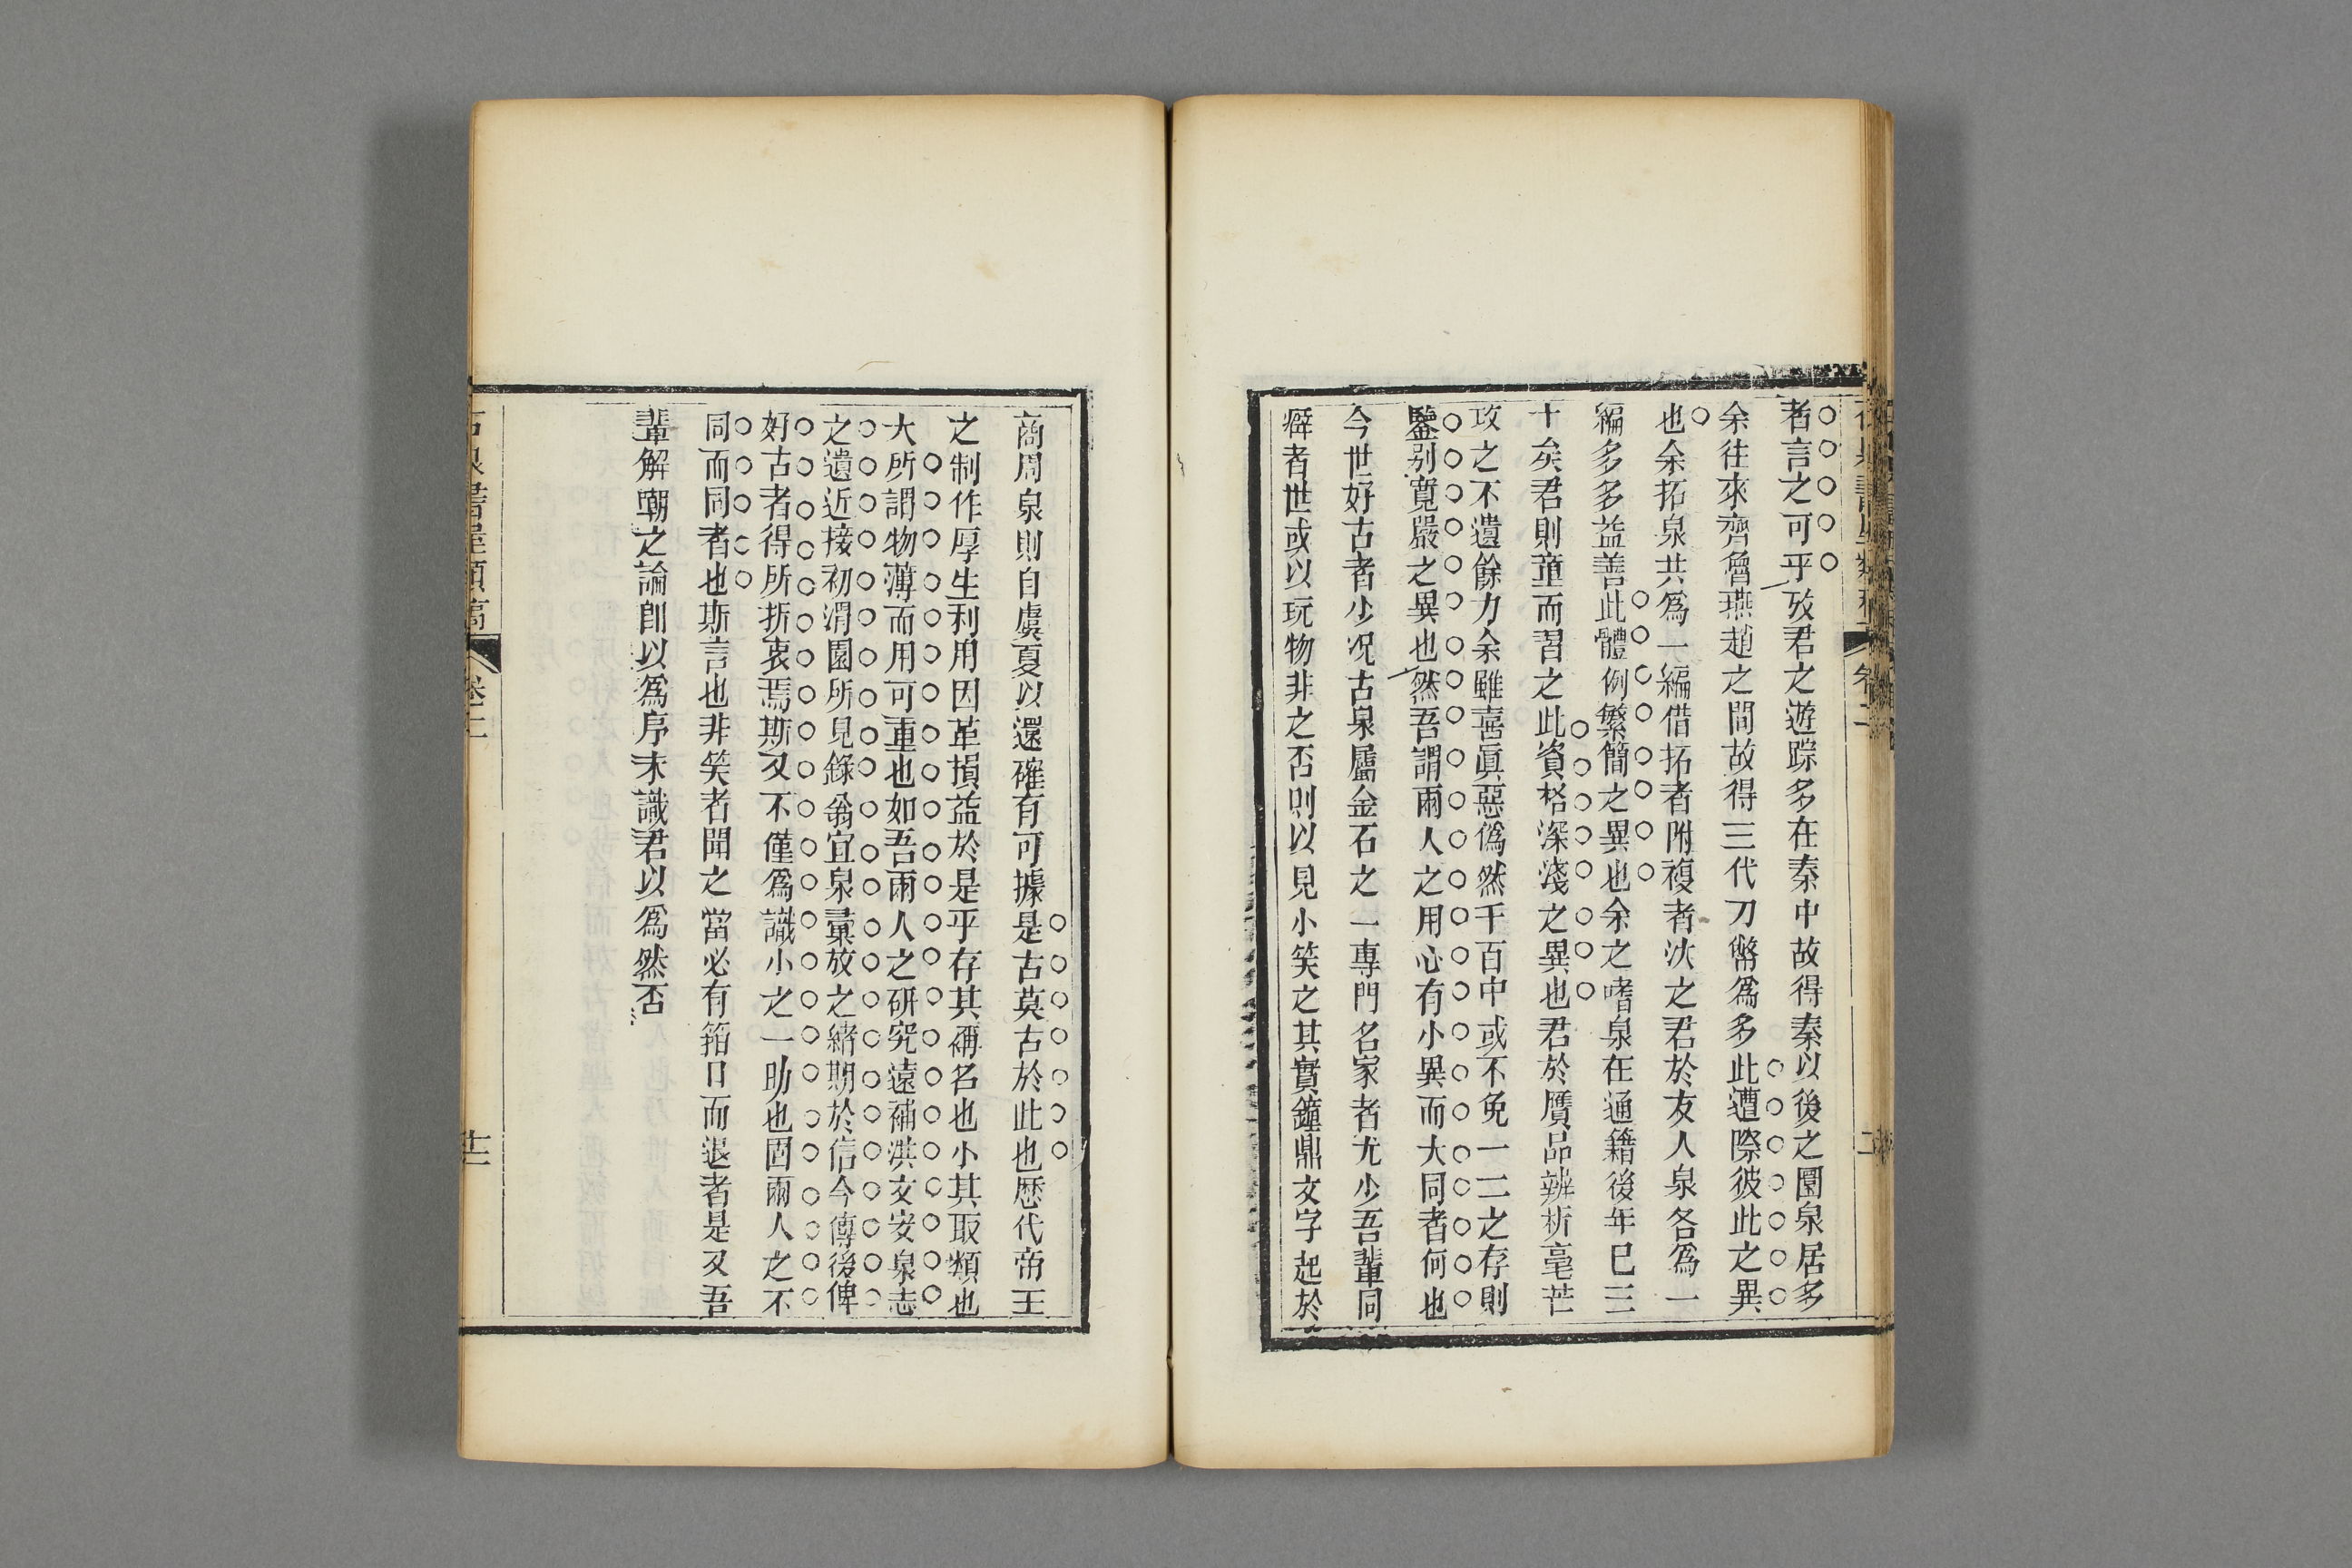 者言之可乎攷君之遊踪多在秦中故得秦以後之圜泉居多
余往來齊魯燕趙之間故得三代刀幣爲多此遭際彼此之異
也余拓泉共爲一編借拓者附複者汰之君於友人泉各爲一
編多多益善此體例繁簡之異也余之嗜泉在通籍後年巳三
十矣君則童而習之此資格深淺之異也君於贋品辨析毫芒
攻之不遺餘力余雖喜眞惡僞然千百中或不免一二之存則
鑒别寬嚴之異也然吾謂兩人之用心有小異而大同者何也
今世好古者少况古泉屬金石之一專門名家者尤少吾輩同
癖者世或以玩物非之否則以見小笑之其實鐘鼎文字起於
商周泉則自虞夏以還確有可據是古莫古於此也歷代帝王
之制作厚生利用因革損益於是乎存其稱名也小其取類也
大所謂物薄而用可重也如吾兩人之研究遠補洪文安泉志
之遺近接初渭園所見錄翁宜泉彙攷之緒期於信今傳後俾
好古者得所折衷焉斯又不僅爲識小之一助也固兩人之不
同而同者也斯言也非笑者聞之當必有箝口而退者是又吾
輩解嘲之論卽以爲序未識君以爲然否
石泉書屋類稿
卷二
十二